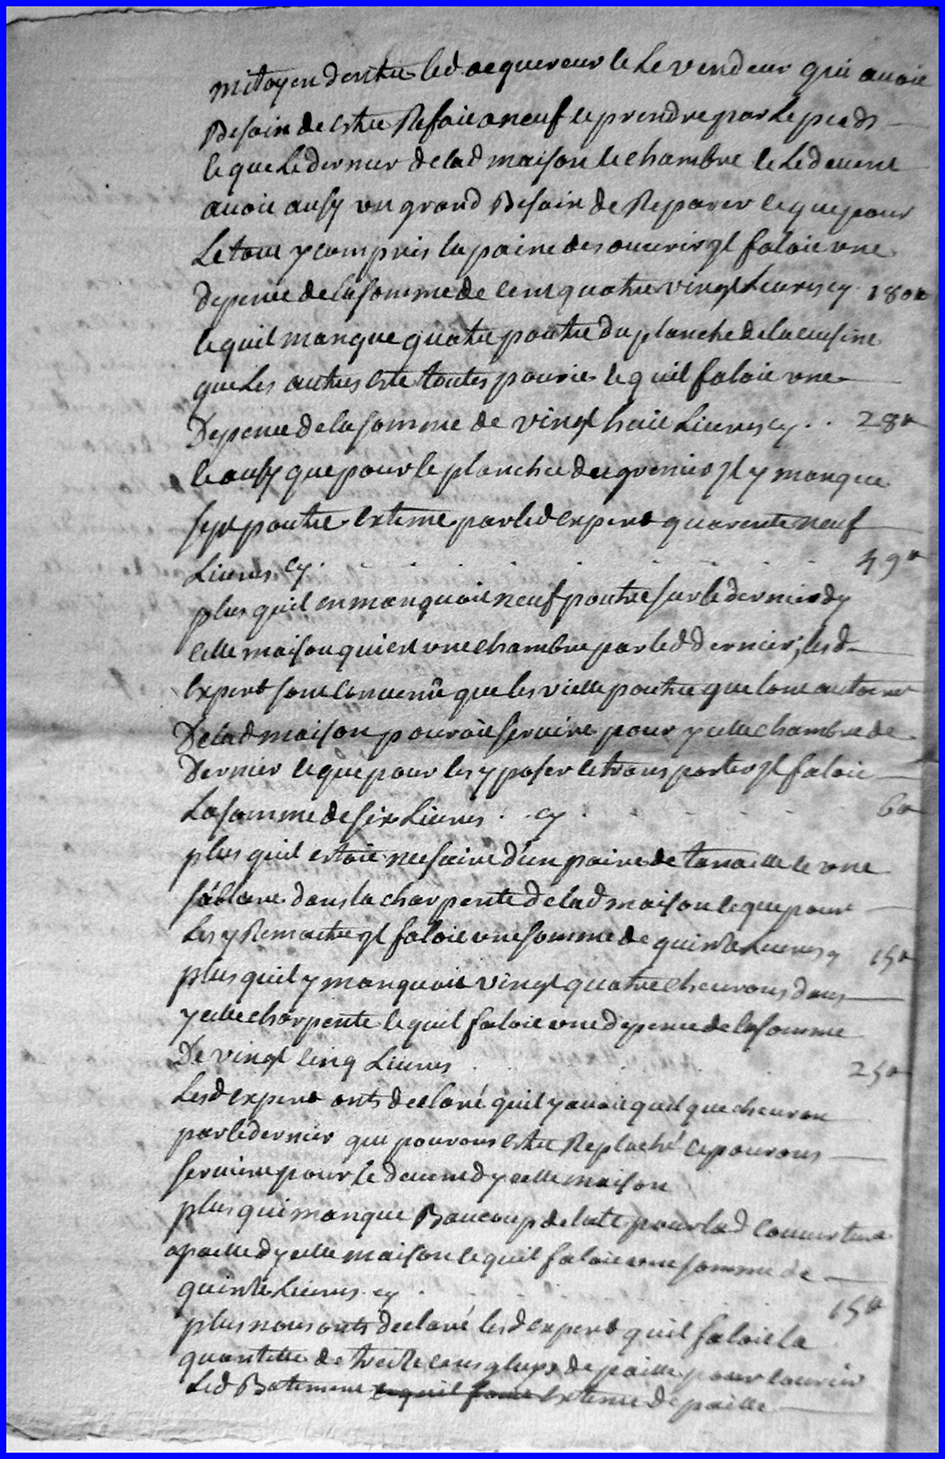 mitoyen d'entre led acquereur le Le vendeur qui avoit
Besoin de estre Refait a neuf le prendre par le pieds
le que Le dernier de lad maison le chambre le Le devent
avoit aussy un grand Besoin de Reparer le que pour
Le tout y compris la paine des ouvrir jl faloit une
depence de la somme de cent quatre vingt Livres cy 180#
le quil manque quatre poutre du planché de la cuisine
que Les autres este toutes pourie le quil faloit une
Depence de la somme de vingt huit Livres cy . . 28#
le aussy que pour le planché du grenier jl y manque
sept poutre extimé par led expert quarente neuf
Livres cy. 49#
plus quil en manquoit neuf poutre sur le dernier dy
celle maison qui est une chambre par led dernier, lesd
expert sont convenü que les vielle poutre que lont
De lad maison pouroit servire pour y celle chambre de
Dernier le que pour les y poser le transporter jl faloit
La somme de six Livres . . cy . 6#
plus quil estoit nessaire d'un paire de tenaille le une
sabliere dans la charpente de lad maison le que pour
Les y Remaitre jl faloit une somme de quinze Livres cy 15#
plus quil y manquoit vingt quatre chevrons dans
y celle charpente le quil faloit une depence de la somme
De vingt cinq Livres 25#
Lesd expert onts declaré quil y avoit quelque chevron
par le dernier qui pouront estre Replaché le pourons
servire pour le devent dy celle maison
plus qui manque Baucoup de late pour lad couverture
apaille dy celle maison le quil faloit une somme de
quinze Livres cy . 15#
plus nous onts declaré lesd expert quil faloit la
quantitée de treize cens gluys de paille pour couvrir
Led Batiment le quil faloit extime de paille